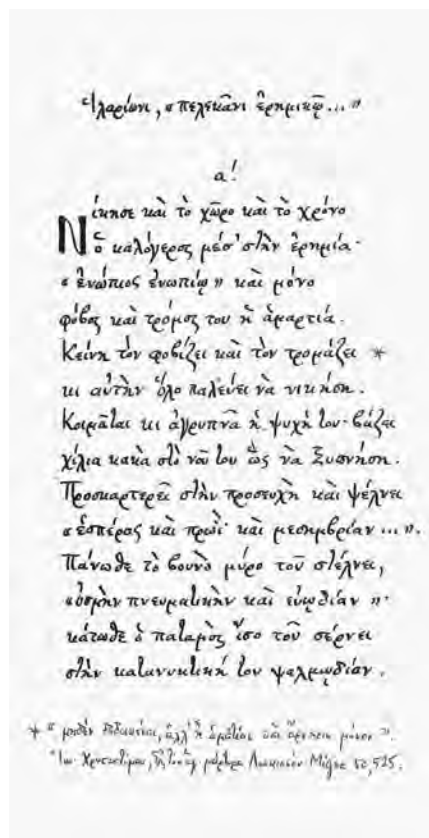 Ἱλαρίωνι, «πελεκᾶνι ἐρημικῷ...»
α!
Νίκησε καὶ τὸ χῶρο καὶ τὸ χρόνο
ὁ καλόγερος μέσ' στὴν ἐρημία·
«ἐνώπιος ἐνωπίῳ» καὶ μόνο
φόβος καὶ τρόμος του ἡ ἁμαρτία.
Κείνη τὸν φοβίζει καὶ τὸν τρομάζει *
κι αὐτὴν ὅλο παλεύει νὰ νικήση.
Κοιμᾶται κι ἀγρυπνᾶ ἡ ψυχή του· βάζει
χίλια κακὰ στὸ νοῦ του ὥς νὰ ξυπνήση.
Προσκαρτερεῖ στὴν προσευχὴ καὶ ψέλνει
«ἑσπέρας καὶ πρωῒ καὶ μεσημβρίαν...».
Πάνωθε τὸ βουνὸ μύρο τοῦ στέλνει,
«ὀσμὴν πνευματικὴν καὶ εὐωδίαν»·
κάτωθε ὁ ποταμὸς ἴσο τοῦ σέρνει
στὴν κατανυκτική του ψαλμωδίαν.
* « μηδὲν δεδοικέναι, ἀλλ' ἢ ἁμαρτίαν καὶ ἄρνησιν μόνον ».
Ἰω. Χρυσοστόμου, μάρτυρα Λουκιανόν Migne 50, 525.